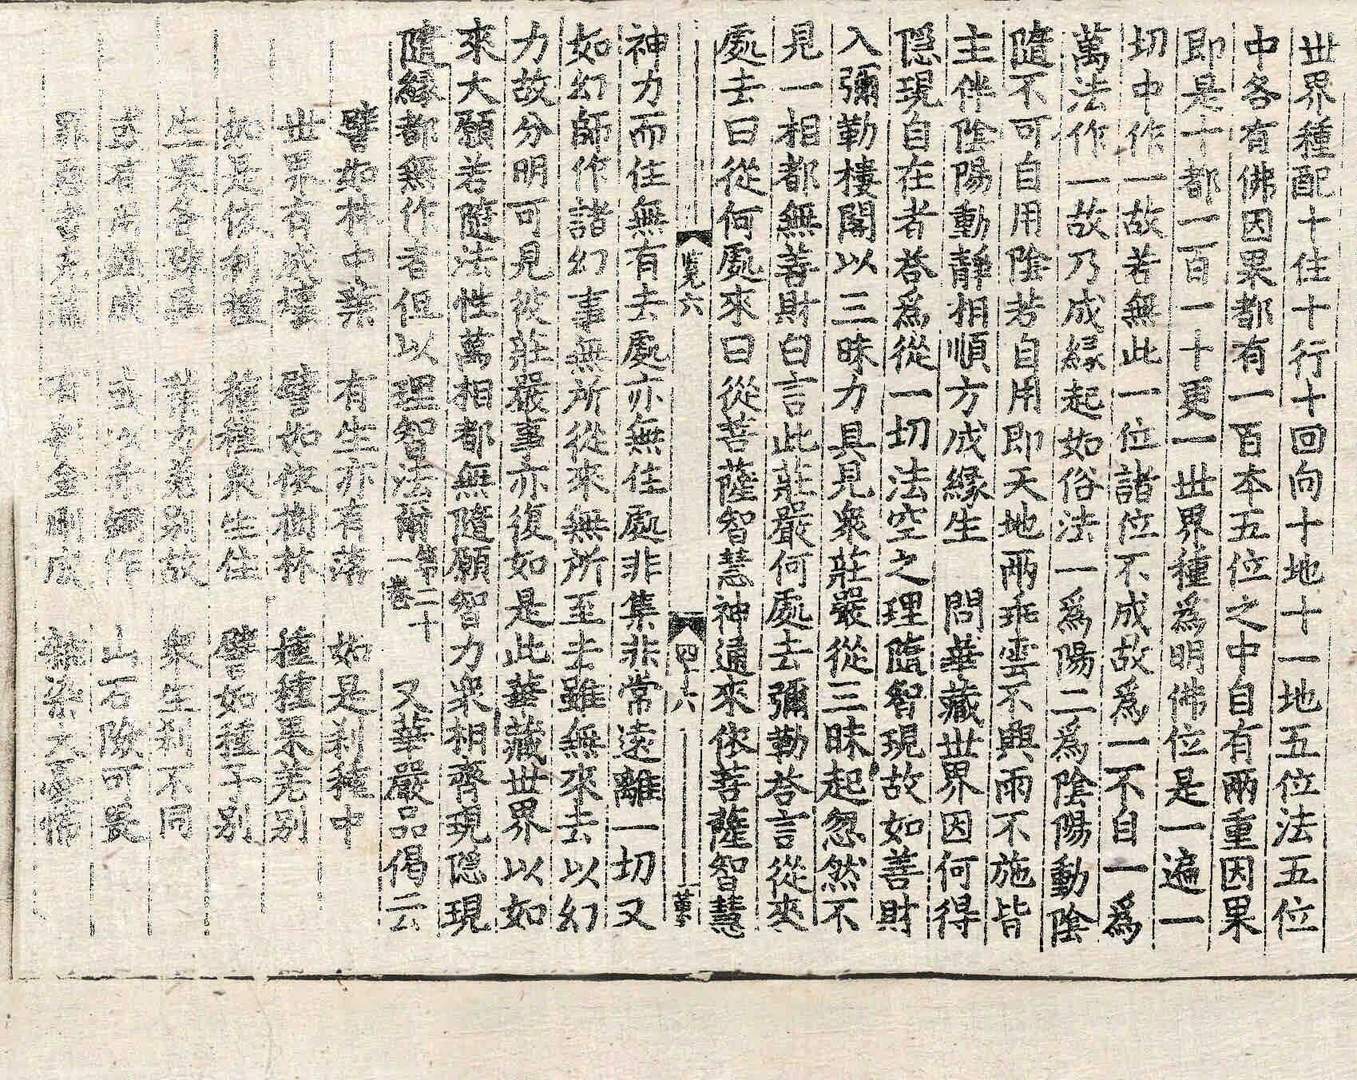 世界種配十住十行十回向十地十一地五位法五位
中各有佛因果都有一百本五位之中自有兩重因果
即是十都一百一十更一世界種為明佛位是一遍一
切中作一故若無此一位諸位不成故為一不自一為
萬法作一故乃成緣起如俗法一為陽二為陰陽動陰
隨不可自用陰若自用即天地兩乖雲不興雨不施皆
主伴陰陽動靜相順方成緣生　問華藏世界因何得
隱現自在者荅為從一切法空之理隨智現故如善財
入彌勒樓閣以三昧力具見衆莊嚴從三昧起忽然不
見一相都無善財白言此莊嚴何處去彌勒荅言從來
處去曰從何處來曰從菩薩智慧神通來依菩薩智慧
覽六　四十六
神力而住無有去處亦無住處非集非常遠離一切又
如幻師作諸幻事無所從來無所至去雖無來去以幻
力故分明可見彼莊嚴事亦復如是此華藏世界以如
來大願若隨法性萬相都無隨願智力衆相齊現隱現
隨緣都無作者但以理智法爾第二十一卷　又華嚴品偈云
譬如林中葉　有生亦有落　如是刹種中
世界有成壞　譬如依樹林　種種果差別
如是依刹種　種種衆生住　譬如種子別
生果各殊異　業力差別故　衆生刹不同
或有用鐵成　或以赤銅作　山石險可畏
罪惡者充滿　有刹金剛成　雜染大憂怖